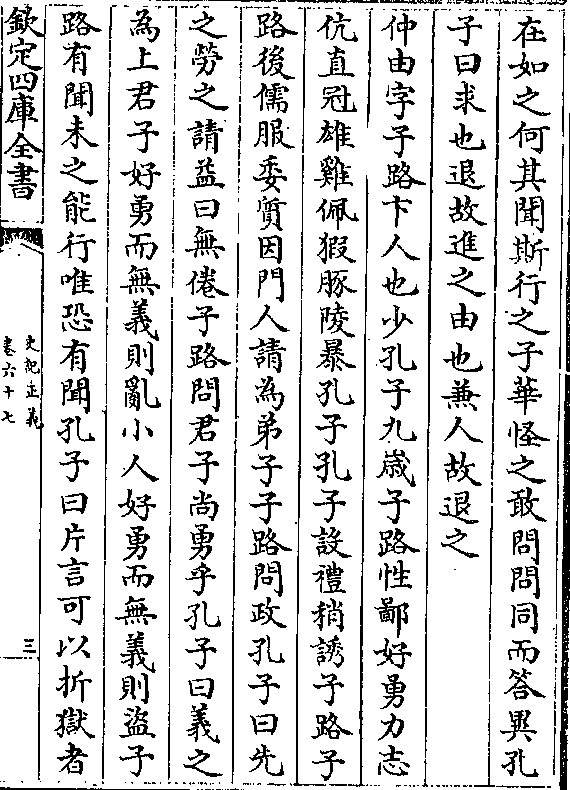 在如之何其聞斯行之子華怪之敢問問同而答異孔
子曰求也退故進之由也兼人故退之
仲由字子路卞人也少孔子九歲子路性鄙好勇力志
伉直冠雄雞佩猳豚陵暴孔子孔子設禮稍誘子路子
路後儒服委質因門人請為弟子子路問政孔子曰先
之勞之請益曰無倦子路問君子尚勇乎孔子曰義之
為上君子好勇而無義則亂小人好勇而無義則盜子
路有聞未之能行唯恐有聞孔子曰片言可以折獄者
欽定四庫全書
史記正義
卷六十七
三